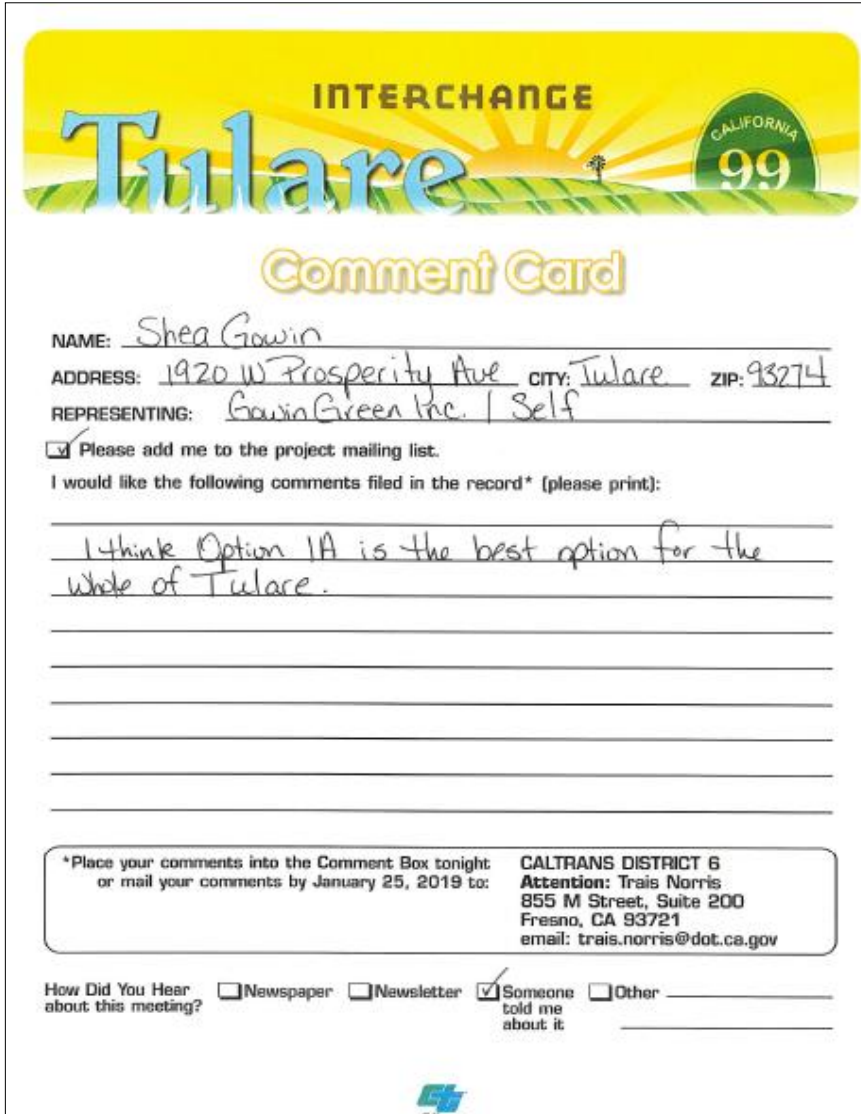 INTERCHANGE
Tulare
CALIFORNIA
99
Comment Card
NAME: Shea Gowin
ADDRESS: 1920 W Prosperity Ave CITY: Tulare ZIP: 93274
REPRESENTING: Gowin Green Inc. / Self
Please add me to the project mailing list.
I would like the following comments filed in the record* (please print):
I think Option 1A is the best option for the
whole of Tulare.
*Place your comments into the Comment Box tonight
or mail your comments by January 25, 2019 to:
CALTRANS DISTRICT 6
Attention: Trais Norris
855 M Street, Suite 200
Fresno, CA 93721
email: trais.norris@dot.ca.gov
How Did You Hear
about this meeting?
Newspaper
Newsletter
Someone
told me
about it
Other